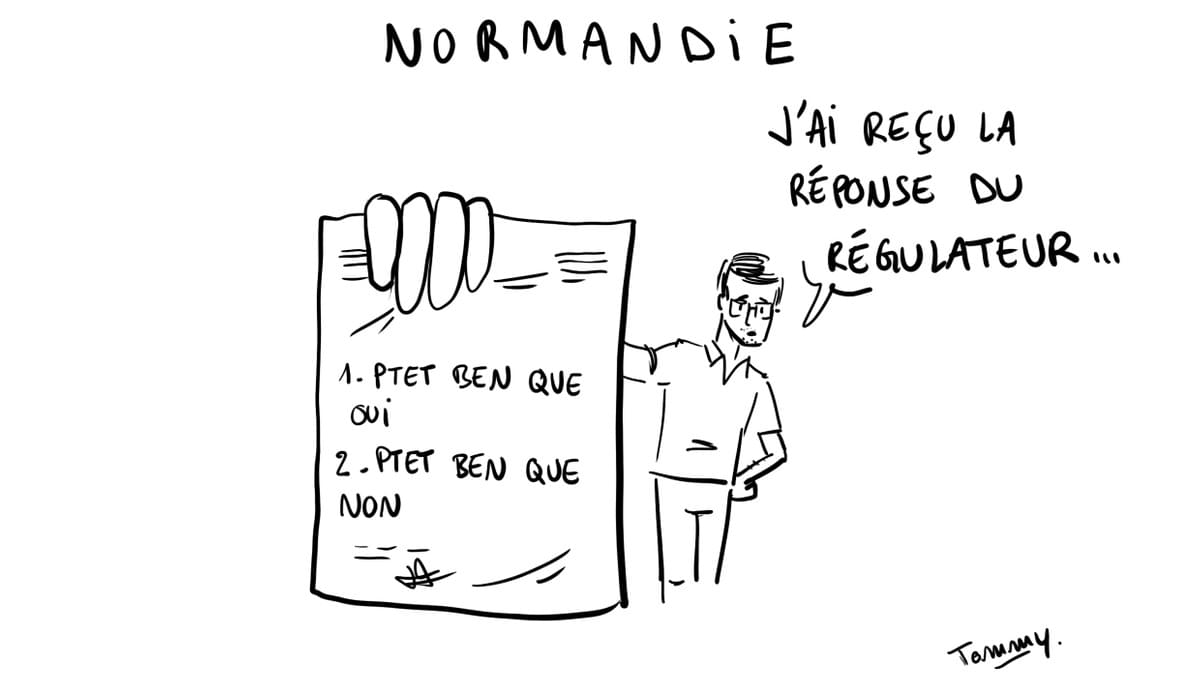 NORMANDiE
J'Ai REÇU LA
RÉPONSE DU
RÉGULATEUR...
1. PTET BEN QUE
OUi
2. PTET BEN QUE
NON
Tommy.